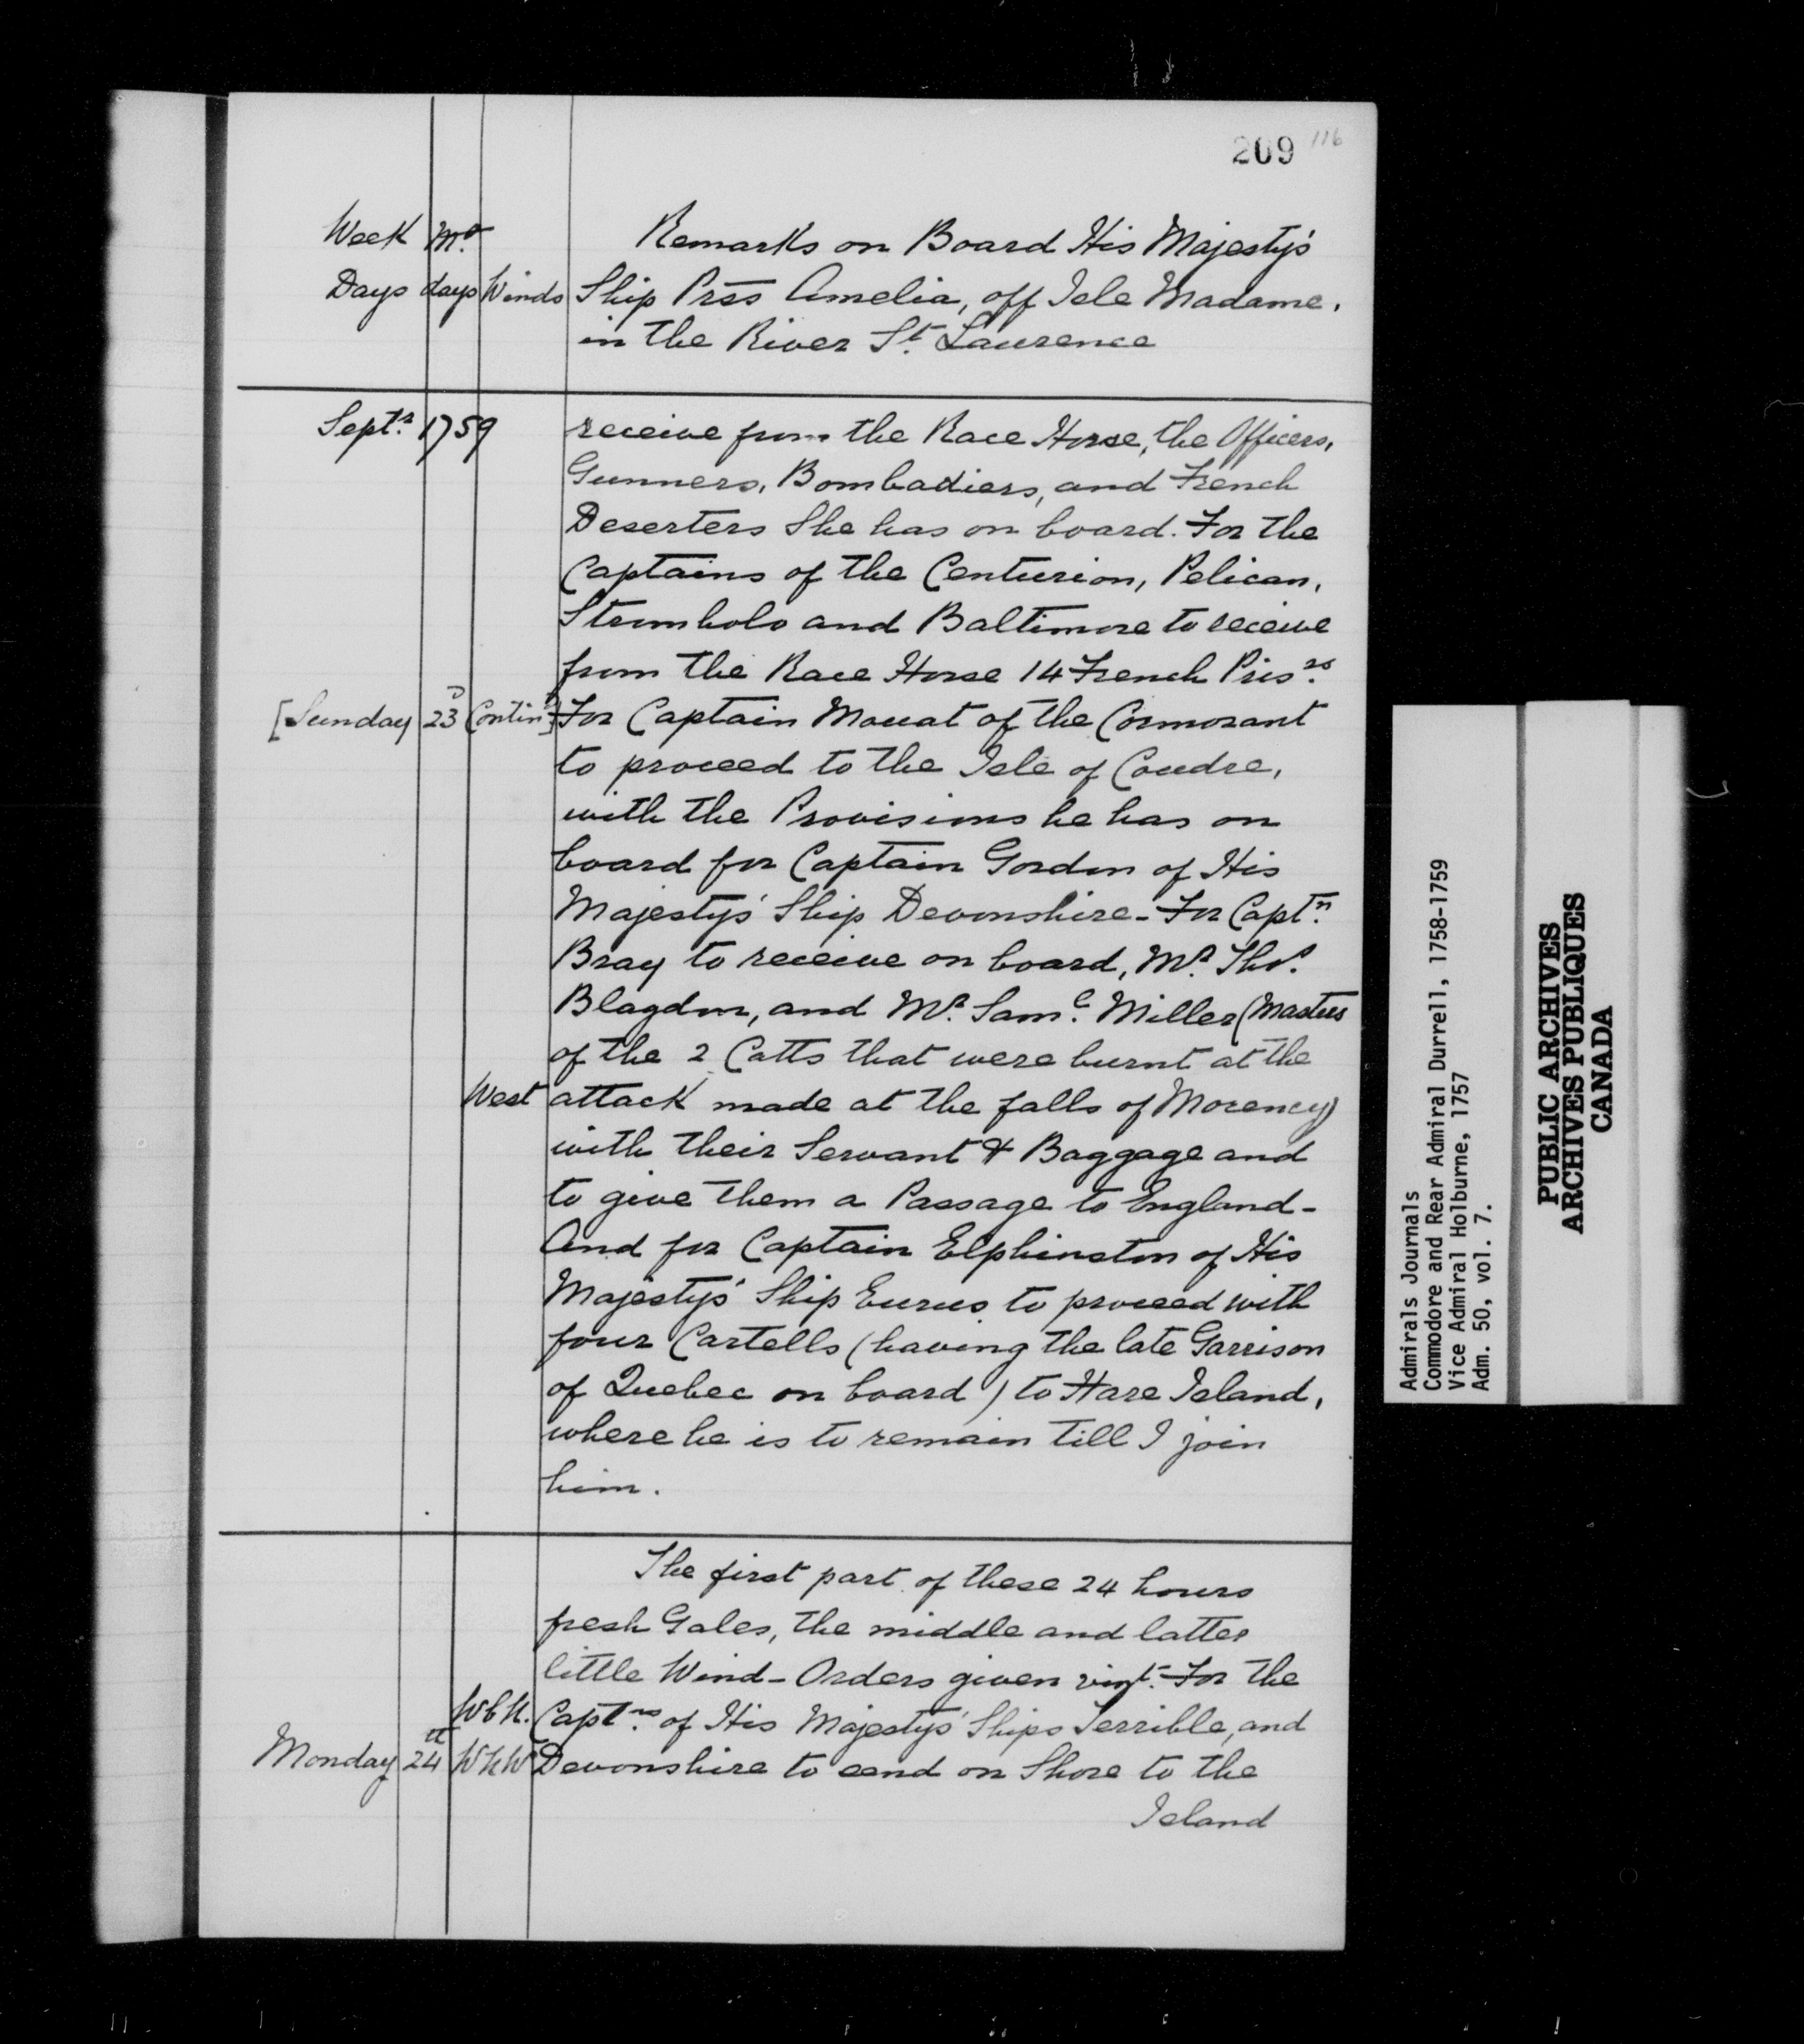 209 116
Week Mo. Remarks on Board His Majesty's
Days days Winds Ship Prss Amelia, off Isle Madame.
in the River St. Laurence
Septr. 1759 receive from the Race Horse, the Officers,
Gunners, Bombadiers, and French
Deserters She has on board. For the
Captains of the Centurion, Pelican,
Strombolo and Baltimore to receive
from the Race Horse 14 French Prisrs.
[Sunday 23d Contind] For Captain Mouat of the Cormorant
to proceed to the Isle of Coudre,
with the Provisions he has on
board for Captain Gordon of His
Majesty's Ship Devonshire - For Captn.
Bray to receive on board, Mr. Thos.
Blagdon, and Mr. Saml. Miller (Masters
of the 2 Catts that were burnt at the
West attack made at the falls of Morency)
with their Servant & Baggage and
to give them a Passage to England -
And for Captain Elphinston of His
Majesty's Ship Eurus to proceed with
four Cartells (having the late Garrison
of Quebec on board) to Hare Island,
where he is to remain till I join
him.
The first part of these 24 hours
fresh Gales, the middle and latter
little Wind - Orders given vizt. For the
WbN. Captns. of His Majesty's Ships Terrible, and
Monday 24th WNW Devonshire to send on Shore to the
Island
Admirals Journals
Commodore and Rear Admiral Durrell, 1758-1759
Vice Admiral Holburne, 1757
Adm. 50, vol. 7.
PUBLIC ARCHIVES
ARCHIVES PUBLIQUES
CANADA